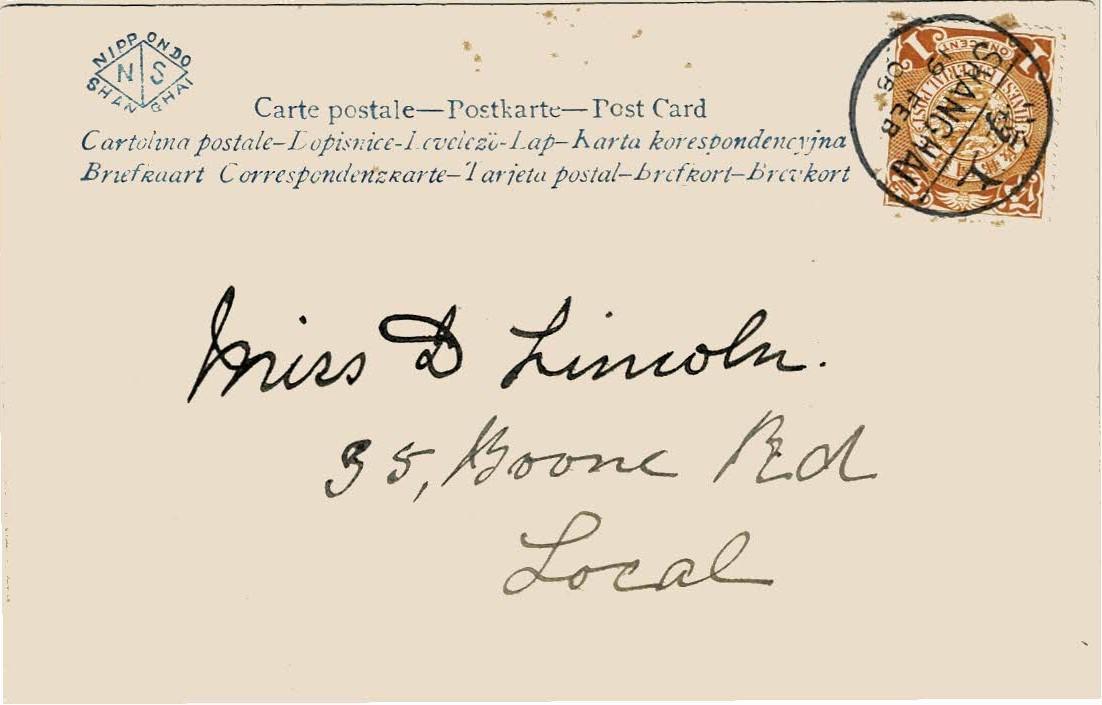 NIPPONDO
N S
SHANGHAI
Carte postale—Postkarte—Post Card
Cartolina postale–Dopisnice–Levelező-Lap–Karta korespondencyjna
Briefkaart Correspondenzkarte–Tarjeta postal–Brefkort–Brevkort
1 ONE CENT 1
SHANGHAI
19 FEB
08
Miss D Lincoln.
35, Boone Rd
Local